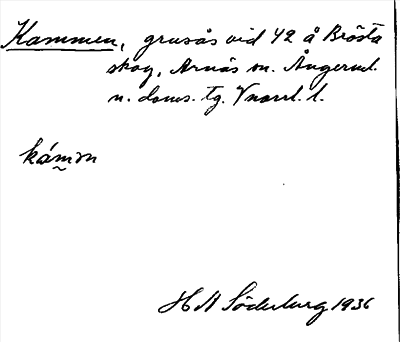 Kammen, grusås vid 42 å Brösta
skog, Arnäs sn. Ångerml.
n. doms. tg. Vnorrl. l.
kámən
H N Söderberg 1936